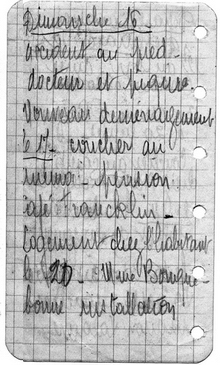 Dimanche 16.
accident au pied -
docteur et piqure.
Nouveau déménagement
le 17 - coucher au
pension
café Francklin -
Logement chez l'habitant
le 20 - Mme
bonne installation